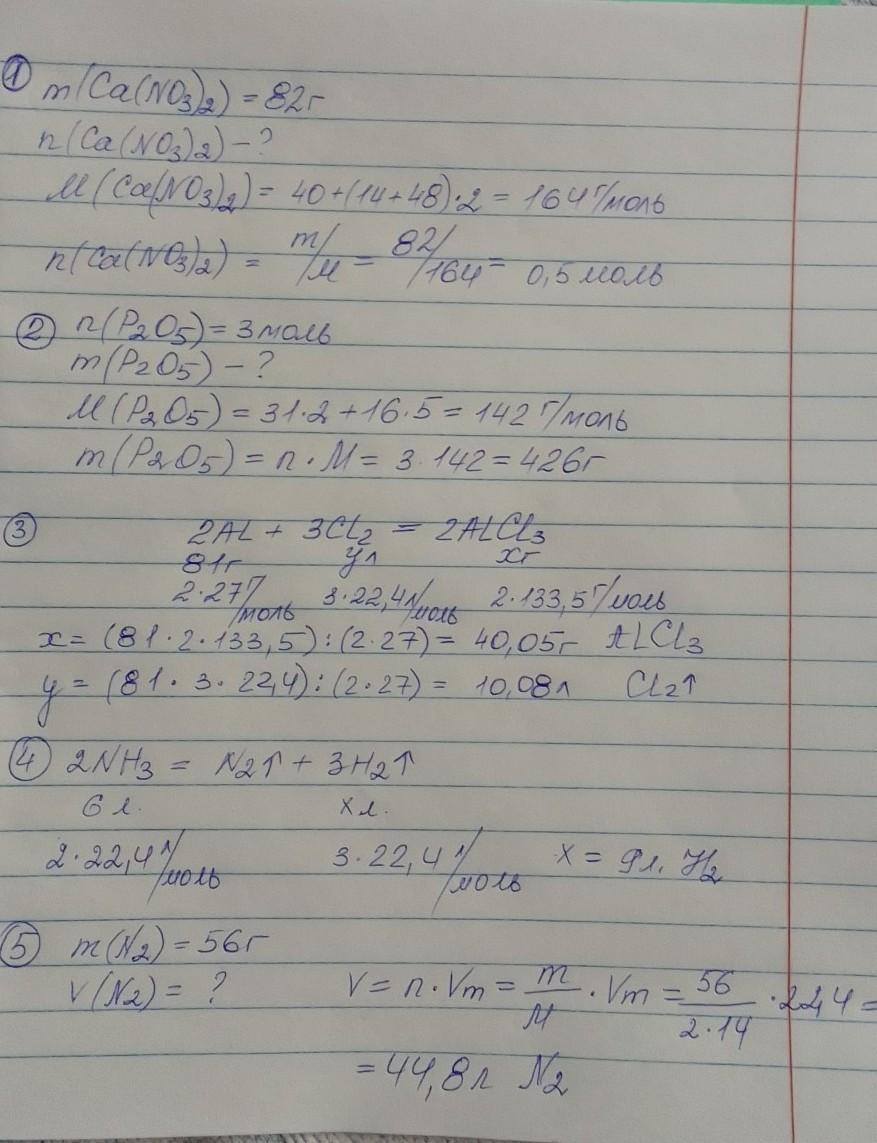 ① m(Ca(NO₃)₂) = 82г
n(Ca(NO₃)₂) – ?
M(Ca(NO₃)₂) = 40+(14+48)·2 = 164 г/моль
n(Ca(NO₃)₂) = m/M = 82/164 = 0,5 моль
② n(P₂O₅) = 3 моль
m(P₂O₅) – ?
M(P₂O₅) = 31·2+16·5 = 142 г/моль
m(P₂O₅) = n·M = 3·142 = 426г
③ 2AL + 3CL₂ = 2ALCL₃
81г yл xг
2·27 г/моль 3·22,4 л/моль 2·133,5 г/моль
x = (81·2·133,5):(2·27) = 40,05г ALCL₃
y = (81·3·22,4):(2·27) = 10,08л CL₂↑
④ 2NH₃ = N₂↑ + 3H₂↑
6 л. x л.
2·22,4 л/моль 3·22,4 л/моль x = 9л. H₂
⑤ m(N₂) = 56г
V(N₂) = ? V = n·Vm = m/M · Vm = 56/2·14 · 22,4 =
= 44,8л N₂